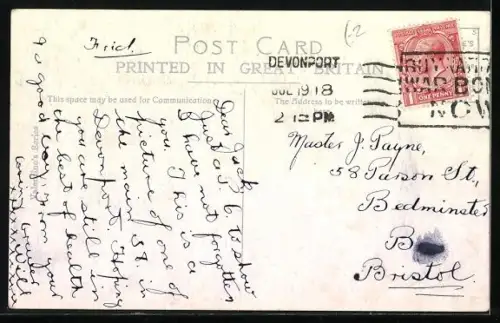 Frid.
6-2
POST CARD
PRINTED IN GREAT BRITAIN
DEVONPORT
JUL 19 18
2 PM
BUY
WAR BON
NOW
ONE PENNY
This space may be used for Communication
The Address to be written
Valentine's Series
Dear Jack,
Just a P. C. to show
I have not forgotten
you. This is a
picture of one of
the main St. in
Devonport. Hoping
you are still in
the best of health
so good bye from your
loving
xxx Will
Master J. Payne,
58 Parson St.,
Bedminster
B
Bristol.